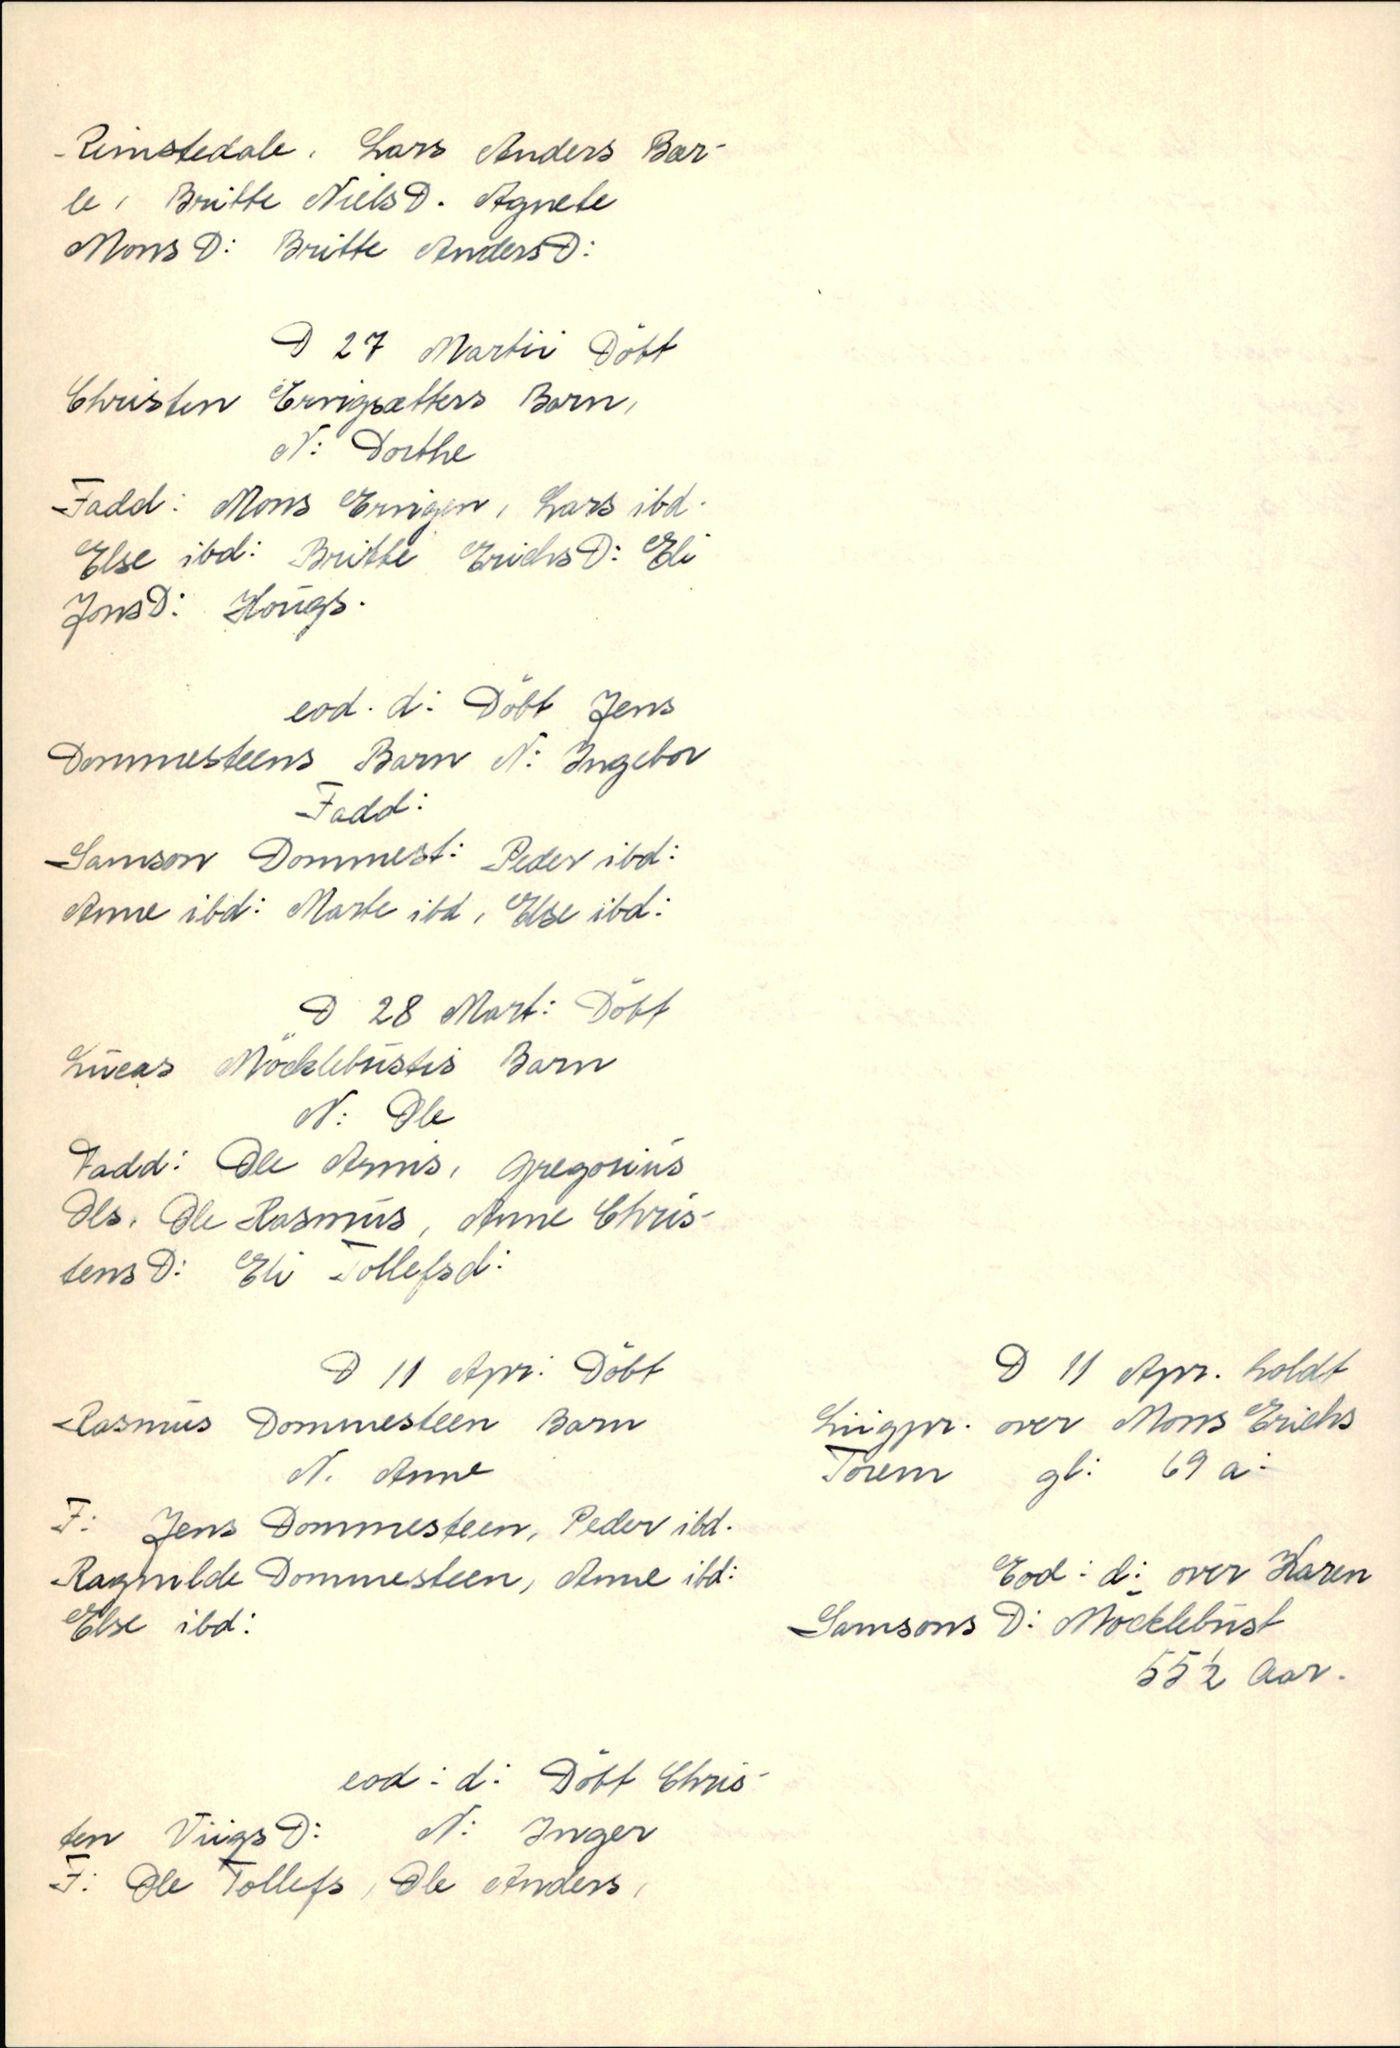 Rimstedale, Lars Anders Bar-
le, Britte Niels D. Agnete
Mons D: Britte Anders D:
D 27 Martii Döbt
Christen Ervigsætters Barn,
N: Dorthe
Fadd: Mons Ervigen, Lars ibd.
Else ibd: Britte Erichs D: Eli
Jons D: Hougs.
eod. d: Döbt Jens
Dommesteens Barn N: Ingebor
Fadd:
Samson Dommest: Peder ibd:
Anne ibd: Marte ibd, Else ibd:
D 28 Mart: Döbt
Lucas Möcklebustis Barn
N: Ole
Fadd: Ole Arnis, Gregorius
Ols, Ole Rasmus, Anne Chris-
tens D: Eli Tollefsd:
D 11 Apr: Döbt
Rasmus Dommesteen Barn
N. Anne
F: Jens Dommesteen, Peder ibd.
Ragnilde Dommesteen, Anne ibd:
Else ibd:
eod: d: Döbt Chris-
ten Viigs D: N: Inger
F: Ole Tollefs, Ole Anders,
D 11 Apr. holdt
Liigpr. over Mons Erichs
Torem gl: 69 a:
Eod: d: over Karen
Samsons D: Möcklebust
55 1/2 Aar.